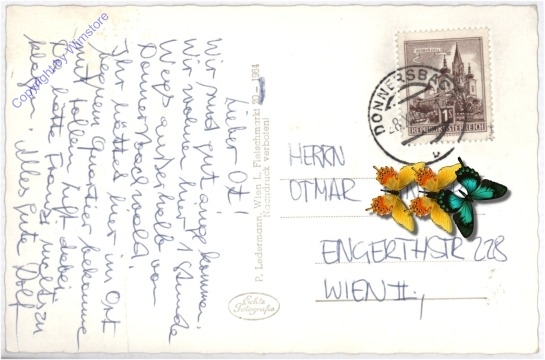 Copyright by Wimstore
Lieber Oti!
Wir sind gut angekommen.
Wir wohnen hier 1 Stunde
Wegs außerhalb von
Donnersbachwald.
Ihr hättet hier im Ort
Quartier bekommen
mit
Da hätte Franz nichts zu
klagen. Alles Gute Dolf
P. Ledermann, Wien I., Fleischmarkt 20 - 1964
Nachdruck verboten!
Echte
Fotografie
1S
REPUBLIK ÖSTERREICH
DONNERSBACH
HERRN
OTMAR
ENGERTHSTR 228
WIEN II,